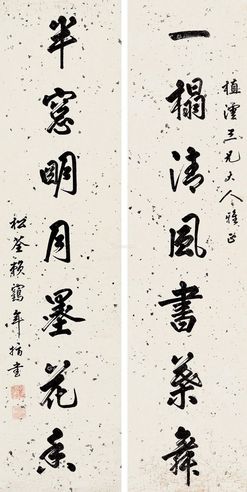 一榻清風書葉舞
植漢三兄大人雅正
半窗明月墨花香
松荃賴鶴年拜書